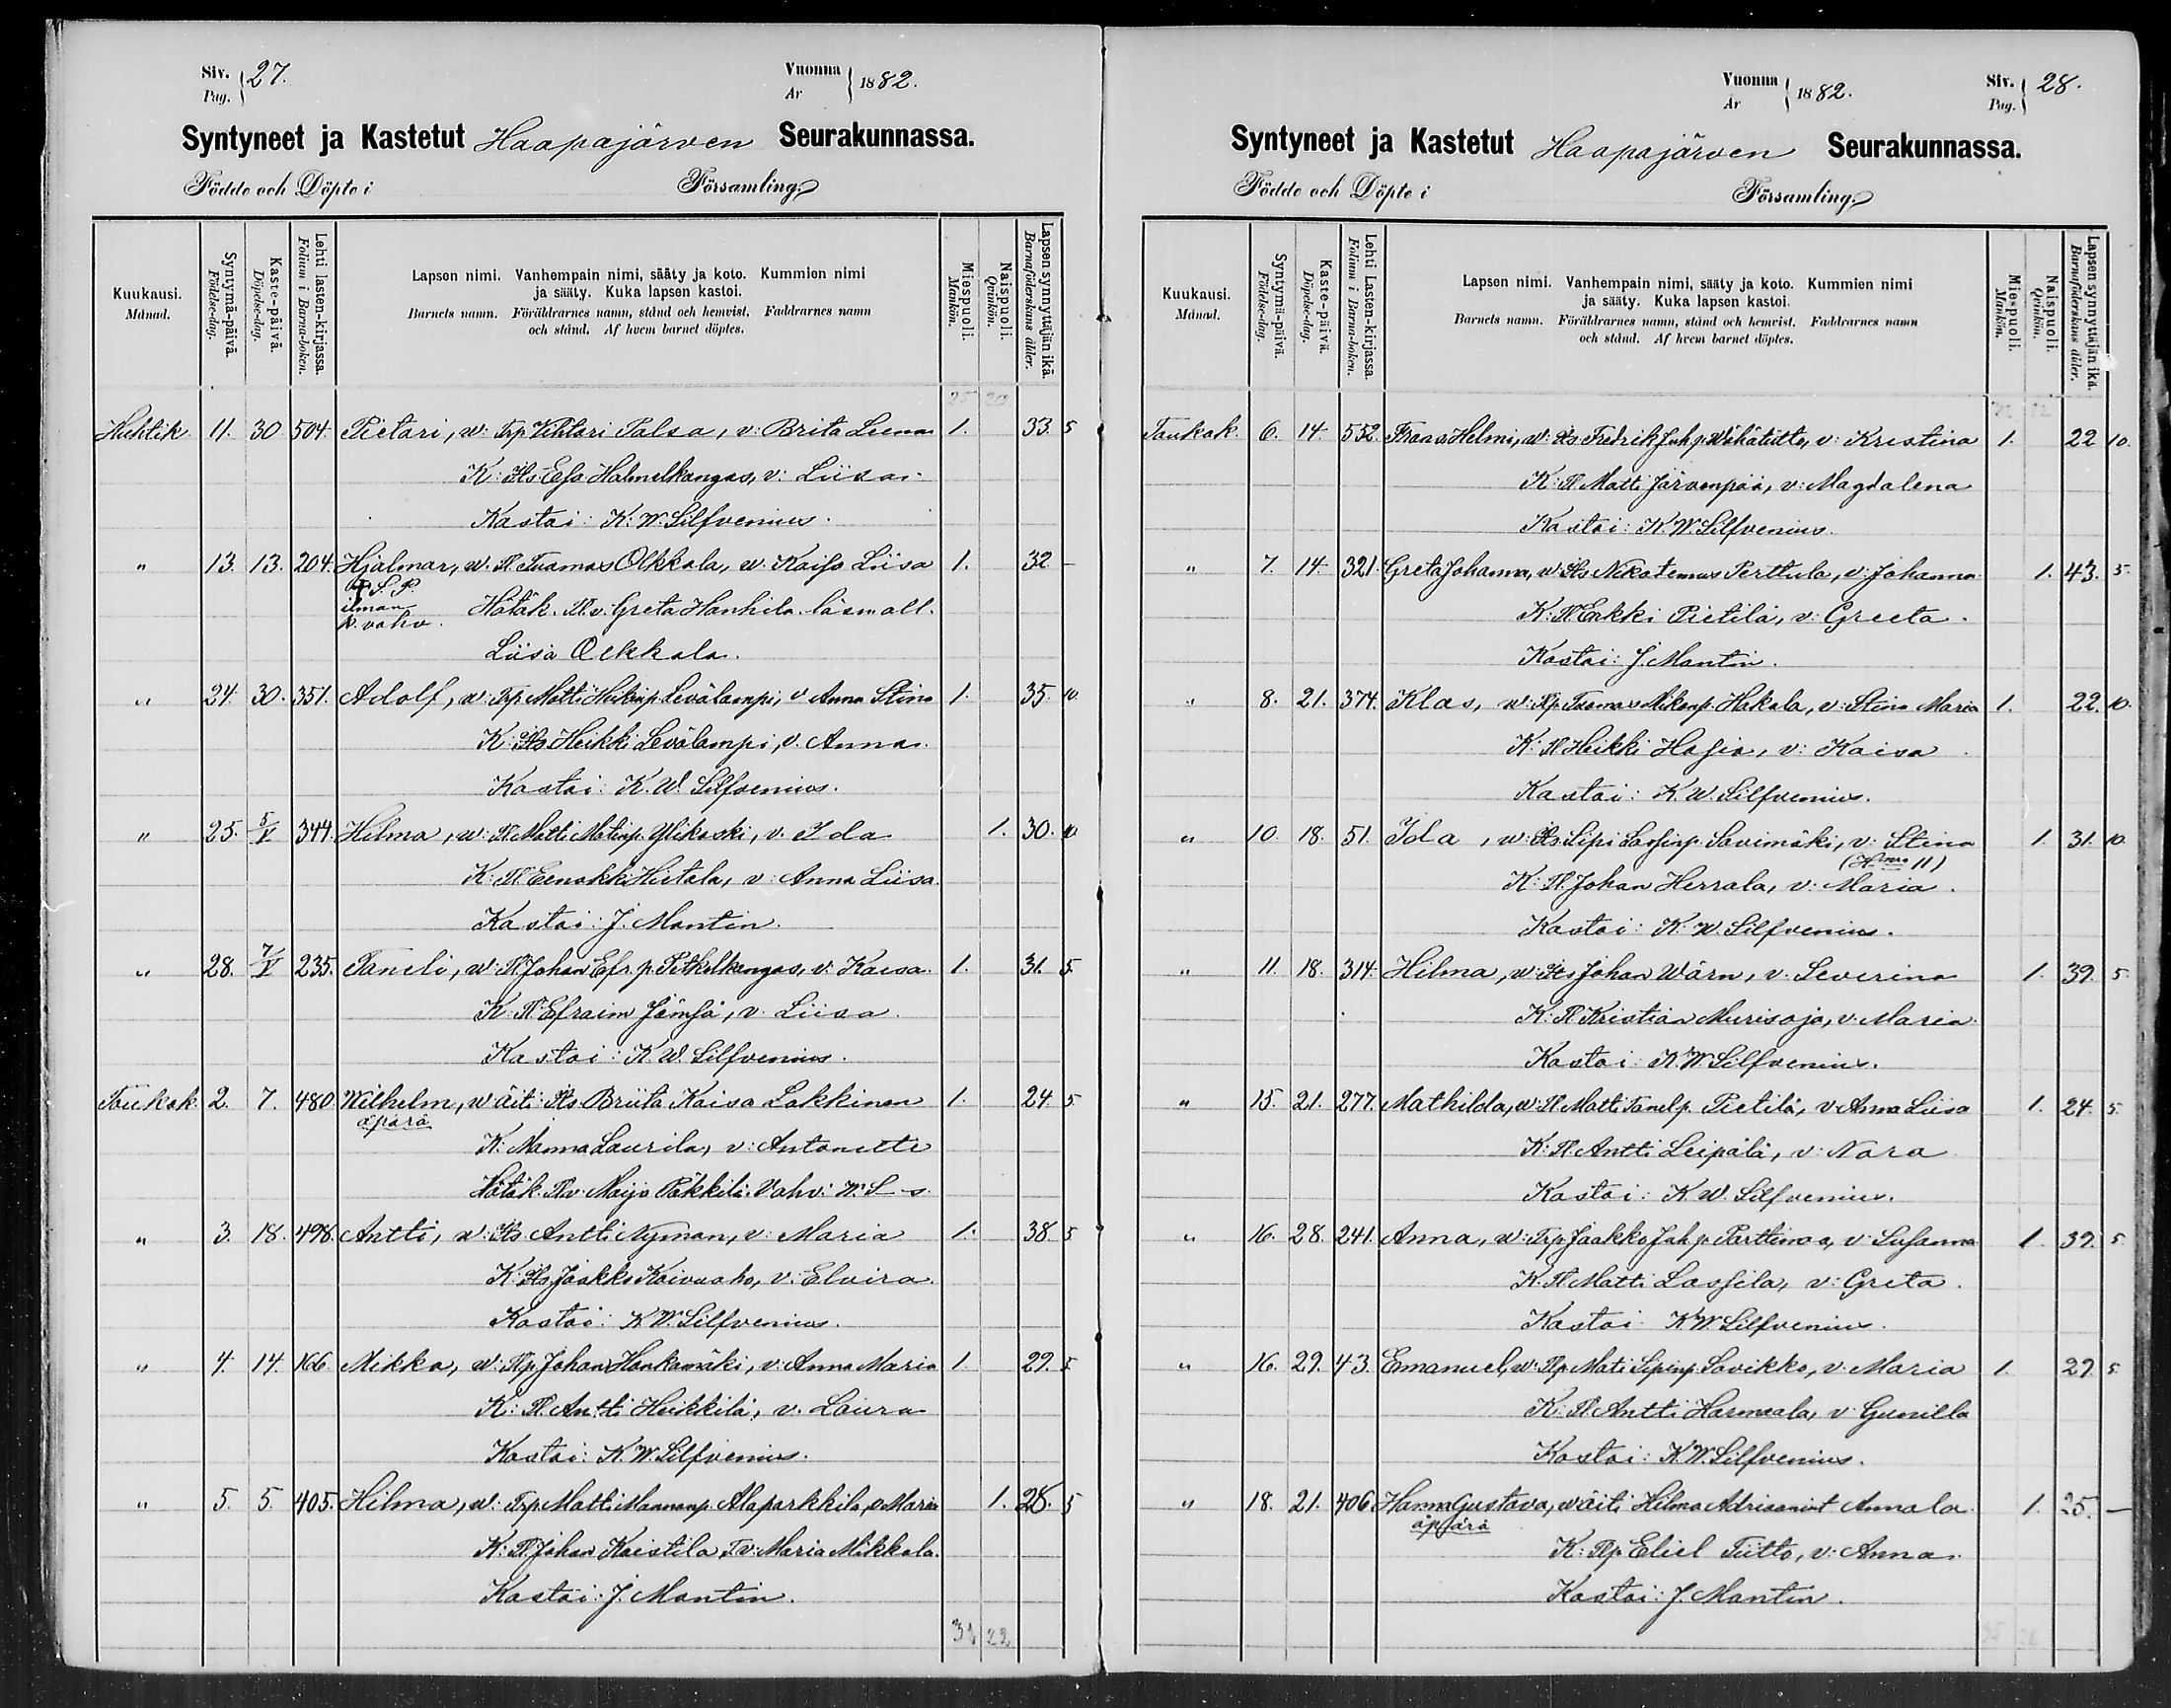 Siv. Pag. } 27.
Vuonna År } 1882.
Syntyneet ja Kastetut Haapajärven Seurakunnassa.
Födde och Döpte i Församling.
Kuukausi. Månad.
Syntymä-päivä. Födelse-dag.
Kaste-päivä. Döpelse-dag.
Lehti lasten-kirjassa. Folium i Barna-boken.
Lapsen nimi. Vanhempain nimi, sääty ja koto. Kummien nimi
ja sääty. Kuka lapsen kastoi.
Barnets namn. Föräldrarnes namn, stånd och hemvist. Faddrarnes namn
och stånd. Af hvem barnet döptes.
Miespuoli. Mankön.
Naispuoli. Qvinkön.
Lapsen synnyttäjän ikä. Barnaföderskans ålder.
Huhtik. 11. 30 504. Pietari, w: Trp Vihtori Palsa, v: Brita Liena 1. 33. 5
K: Its Esa Halmelkangas, v: Liisa
Kastoi: K. W. Silfvenius.
" 13. 13. 204. Hjalmar, w. Tl Tuomas Olkkola, w. Kaisa Liisa 1. 32 -
S. P.
ilman
k. vahv. Hätäk. Tl v. Greta Hanhila läsn oll.
Liisa Olkkola.
" 24. 30. 351. Adolf, w: Trp Matti Heikinp. Levälampi, v Anna Stina 1. 35. 10
K: Its Heikki Levälampi, v. Anna.
Kastoi: K. W. Silfvenius.
" 25. 5/V 344. Hilma, w: Tl Matti Matinp. Ylikoski, v. Ida 1. 30. 10
K: Tl Eenokki Hietala, v: Anna Liisa.
Kastoi: J. Mantin.
" 28. 7/V 235. Taneli, w: Tl Johan Efr. p. Pitkälkangas, v: Kaisa. 1. 31. 5.
K: Tl Efraim Jämsä, v. Liisa.
Kastoi: K. W. Silfvenius.
Toukok. 2. 7. 480 Wilhelm, w äiti: Its Briita Kaisa Lakkinen 1. 24. 5.
äpärä
K: Manna Laurila, v: Antonette
Hätäk. Tlv. Maija Päkkilä. Vahv: W. S-s.
" 3. 18. 498. Antti, w: Its Antti Nyman, v: Maria 1. 38. 5
K: Its Jaakko Koivuaho, v: Elvira.
Kastoi: K W. Silfvenius.
" 4. 14. 166. Mikko, w: Tlp. Johan Honkamäki, v: Anna Maria 1. 29. 5
K: Tl. Antti Heikkilä, v. Laura
Kastoi: K. W. Silfvenius.
" 5. 5. 405. Hilma, w: Trp Matti Mannanp. Alaparkkila, v Maria 1. 28. 5
K: Tl. Johan Kaistila, T. v: Maria Mikkola.
Kastoi: J. Mantin.
31 22
Vuonna År } 1882.
Siv. Pag. } 28.
Syntyneet ja Kastetut Haapajärven Seurakunnassa.
Födde och Döpte i Församling.
Kuukausi. Månad.
Syntymä-päivä. Födelse-dag.
Kaste-päivä. Döpelse-dag.
Lehti Lasten-kirjassa. Folium i Barna-boken.
Lapsen nimi. Vanhempain nimi, sääty ja koto. Kummien nimi
ja sääty. Kuka lapsen kastoi.
Barnets namn. Föräldrarnes namn, stånd och hemvist. Faddrarnes namn
och stånd. Af hvem barnet döptes.
Miespuoli. Mankön.
Naispuoli. Qvinkön.
Lapsen synnyttäjän ikä. Barnaföderskans ålder.
Toukok. 6. 14. 552. Frans Helmi, w: Its Fredrik Juh. p. Wihätutto, v: Kristina 1. 22 10.
K: Tl Matti Järvenpää, v: Magdalena
Kastoi: K. W. Silfvenius.
" 7. 14. 321. Greta Johanna, w: Its Nikotemus Perttula, v: Johanna 1. 43. 5.
K: Tl Erkki Pietilä, v: Greeta.
Kastoi: J. Mantin.
" 8. 21. 374. Klas, w: Tlp. Tuomas Mikonp. Hakala, v: Stina Maria 1. 22. 10.
K: Tl Heikki Hasia, v: Kaisa
Kastoi: K. W. Silfvenius.
" 10. 18. 51. Ida, w: Its Sipi Lassinp. Savimäki, v: Stina 1. 31. 10.
K: Tl Johan Herrala, v: Maria.
Kastoi: K. W. Silfvenius.
" 11. 18. 314. Hilma, w: Its Johan Wärn, v: Severina 1. 39. 5.
K: Tl Kristian Murisoja, v: Maria.
Kastoi: K. W. Silfvenius.
" 15. 21. 277. Mathilda, w: Tl. Matti Tanelp. Pietilä, v: Anna Liisa 1. 24. 5.
K: Tl. Antti Leipälä, v: Nora
Kastoi: K. W. Silfvenius.
" 16. 28. 241. Anna, w: Trp. Jaakko Juh. p. Parttimaa, v: Susanna 1. 39. 5
K. Tl. Matti Lassila, v: Greta.
Kastoi: K W. Silfvenius.
" 16. 29. 43. Emanuel, w: Tlp. Mati Sipinp. Savikko, v: Maria 1. 29. 5.
K: Tl Antti Harmaala, v: Gunilla
Kastoi: K. W. Silfvenius.
" 18. 21. 406 Hanna Gustava, w äiti Hilma Adriaanint Annala. 1. 25. -
äpärä
K: Tlp. Eliel Tiitto, v: Anna.
Kastoi: J. Mantin.